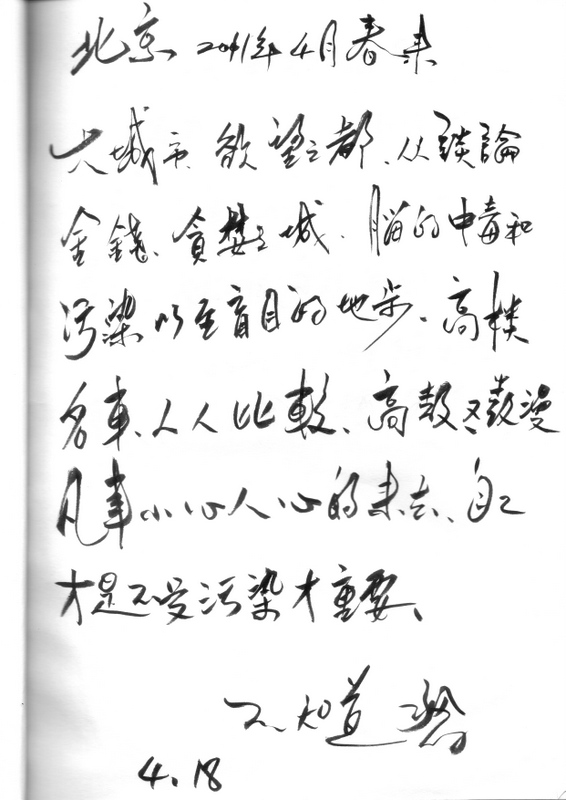 北京 2011年4月春来
大城市、欲望之都、从談論
金錢、貪婪之城、腦的中毒和
污染以至盲目的地步、高樓
名車、人人比較、高散漫
凡事小心人心的来去、自己
才是不受污染才重要、
不知道
4.18